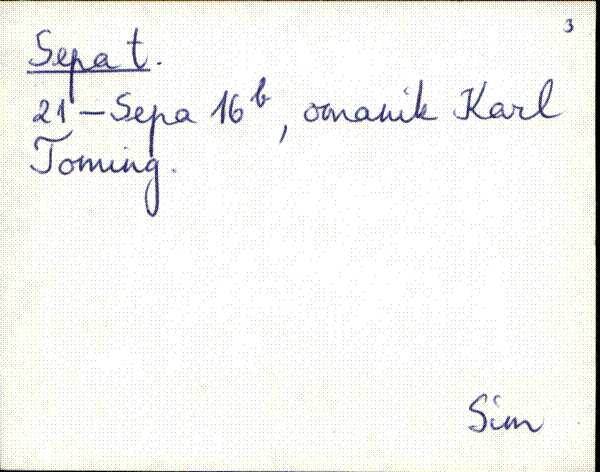 3
Sepa t.
21 – Sepa 16ᵇ, omanik Karl
Toming.
Sim